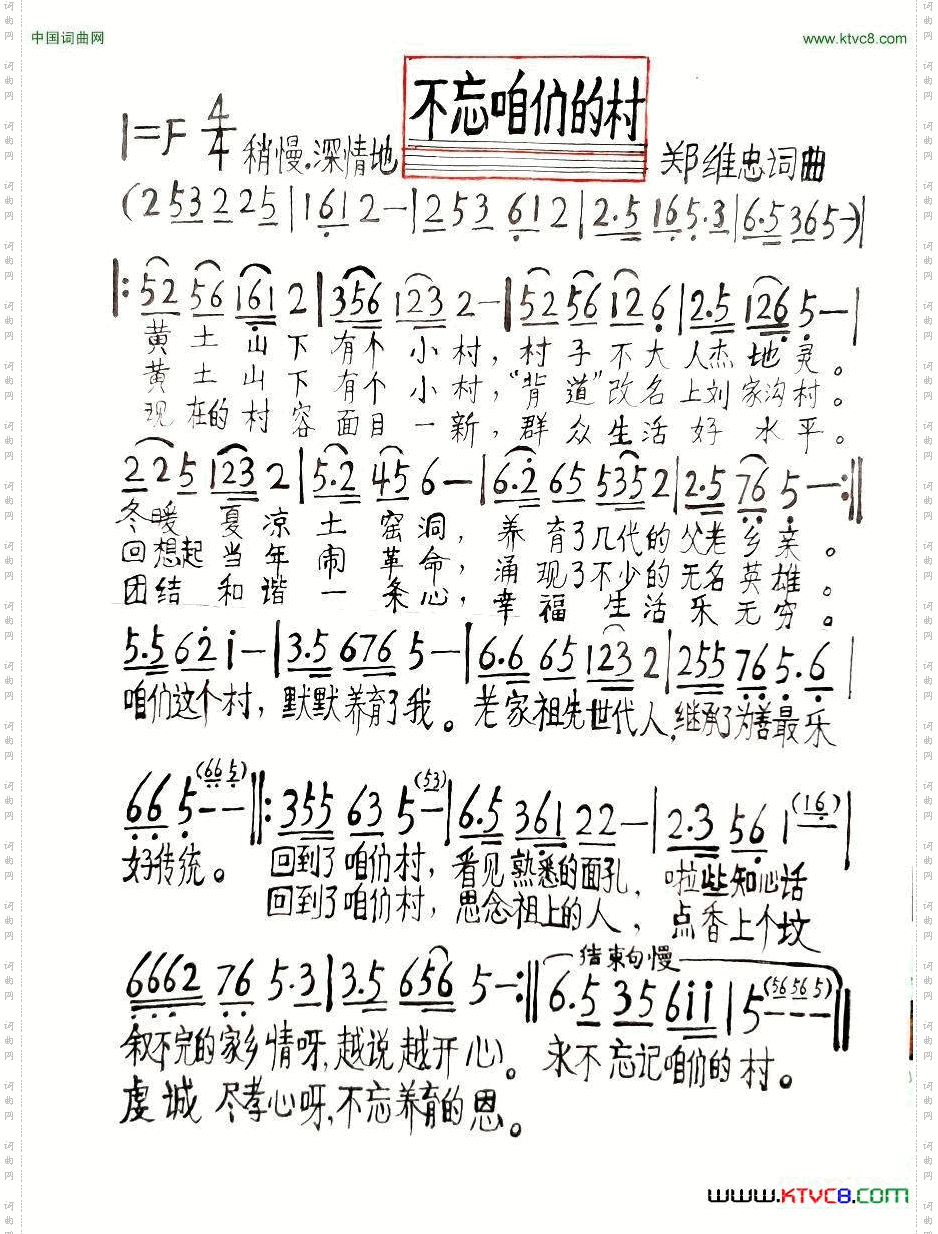 中国词曲网 www.ktvc8.com
不忘咱们的村
1=F 4/4 稍慢.深情地 郑维忠词曲
(2 53 2 2 5 | 1 61 2 — | 2 53 61 2 | 2.5 16 5.3 | 6.5 36 5 —) |
|: 52 56 161 2 | 356 123 2 — | 52 56 12 6 | 2.5 126 5 — |
黄土山下有个小村，村子不大人杰地灵。
黄土山下有个小村，“背道”改名上刘家沟村。
现在的村容面目一新，群众生活好水平。
2 2 5 123 2 | 5.2 45 6 — | 6.2 65 535 2 | 2.5 76 5 — :||
冬暖夏凉土窑洞，养育了几代的父老乡亲。
回想起当年闹革命，涌现了不少的无名英雄。
团结和谐一条心，幸福生活乐无穷。
5.5 62 i — | 3.5 676 5 — | 6.6 65 123 2 | 255 76 5.6 |
咱们这个村，默默养育了我。老家祖先世代人，继承了为善最乐
66 5 — — (66 5) ||: 355 63 5 — (53) | 6.5 361 22 — | 2.3 56 1 — (16) |
好传统。 回到了咱们村，看见熟悉的面孔，啦些知心话
回到了咱们村，思念祖上的人，点香上个坟
结束句慢
6662 76 5.3 | 3.5 656 5 — :|| 6.5 35 6ii | 5 — — — (56 56 5) ||
叙不完的家乡情呀，越说越开心。永不忘记咱们的村。
虔诚尽孝心呀，不忘养育的恩。
www.KTVC8.com